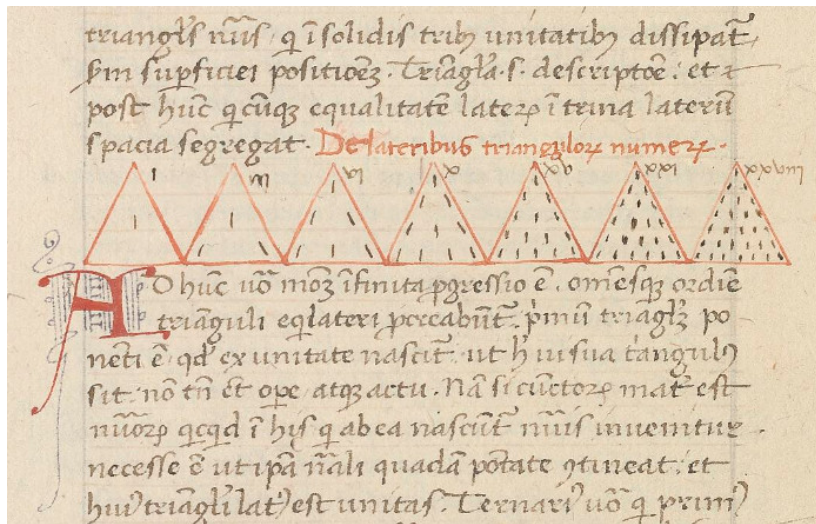 triangl's nũs, q̃ ĩ solidis trib; unitatib; dissipat̃,
sm̃ suꝑficiei positiõez. Triãgl'a .s. descriptõe: et r̃
post hũc q̃ cũq; equalitatẽ lateꝝ ĩ trina laterũ
spacia segregat. De lateribus trianguloꝝ numeꝝ.
I III VI X XV XXI XXVIII
AD hũc uõ moz ĩfinita ꝓgressio ẽ. om̃esq; ordiẽ
triãguli eq̃lateri ꝓcreabũt̃. p̃mũ triãgl'z po
nẽti ẽ, qd̃ ex unitate nascit̃. ut h̃ ui sua t̃angul9
sit. nõ tñ et̃ oꝑe, atq; actu. Nã si cũctoꝝ mat̃ est
nũoꝝ q̃cq̃d ĩ his q̃ ab ea nascũt̃ nũis invenitur.
necesse ẽ ut ip̃a nãli quadã põtate ꝯtineat. et
hui9 triãgl'i lat9 est unitas. Ternari9 uõ q̃ prim9